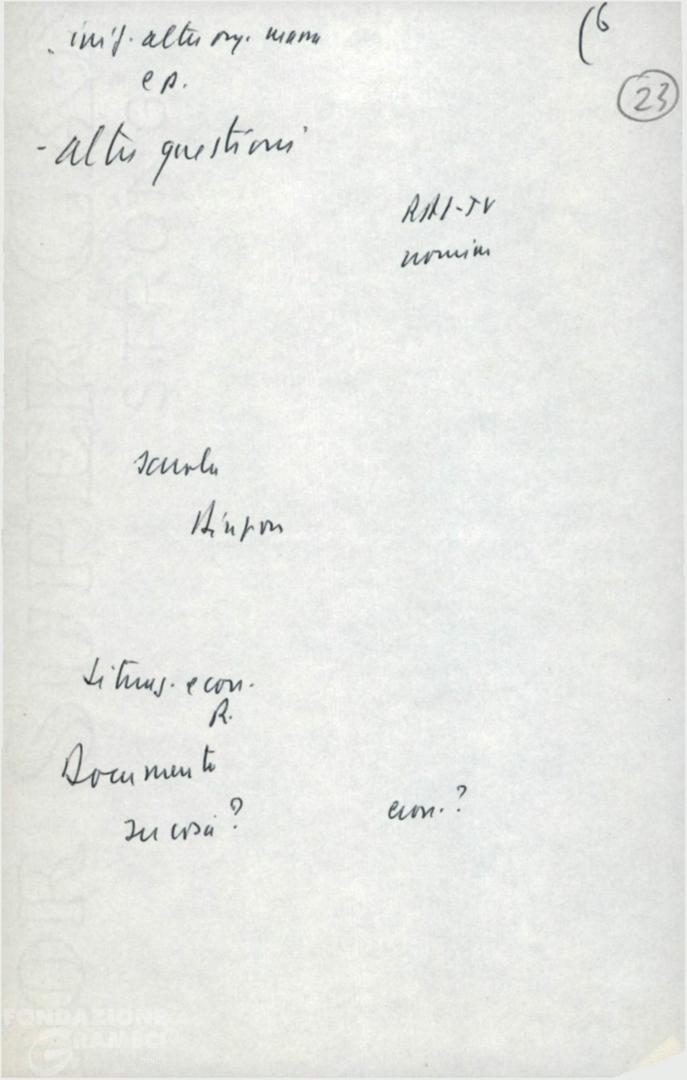 (6
23
. iniz. altre org. massa
e p.
- altre questioni
RAI-TV
nomine
scuola
situaz. econ.
R.
Documento
su cosa?
econ.?
FONDAZIONE
GRAMSCI